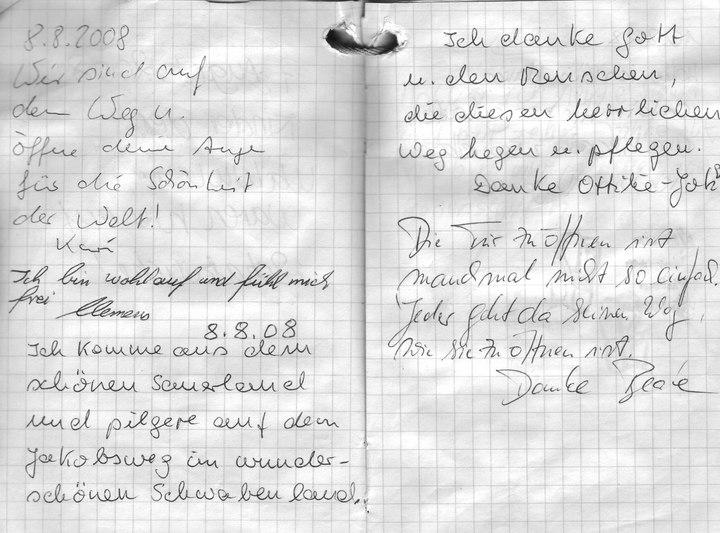 8.8.2008
Wir sind auf
dem Weg u.
öffne deine Auge
für die Schönheit
der Welt!
Ich bin wohlauf und fühl mich
frei Clemens
8.8.08
Ich komme aus dem
schönen Sauerland
und pilgere auf dem
Jakobsweg im wunder-
schönen Schwabenland.
Ich danke Gott
u. den Menschen,
die diesen herrlichen
Weg hegen u. pflegen.
Danke Ottilie-Jak
Die Tür zu öffnen ist
manchmal nicht so einfach.
Jeder geht da seinen Weg,
wie sie zu öffnen ist.
Danke Beate